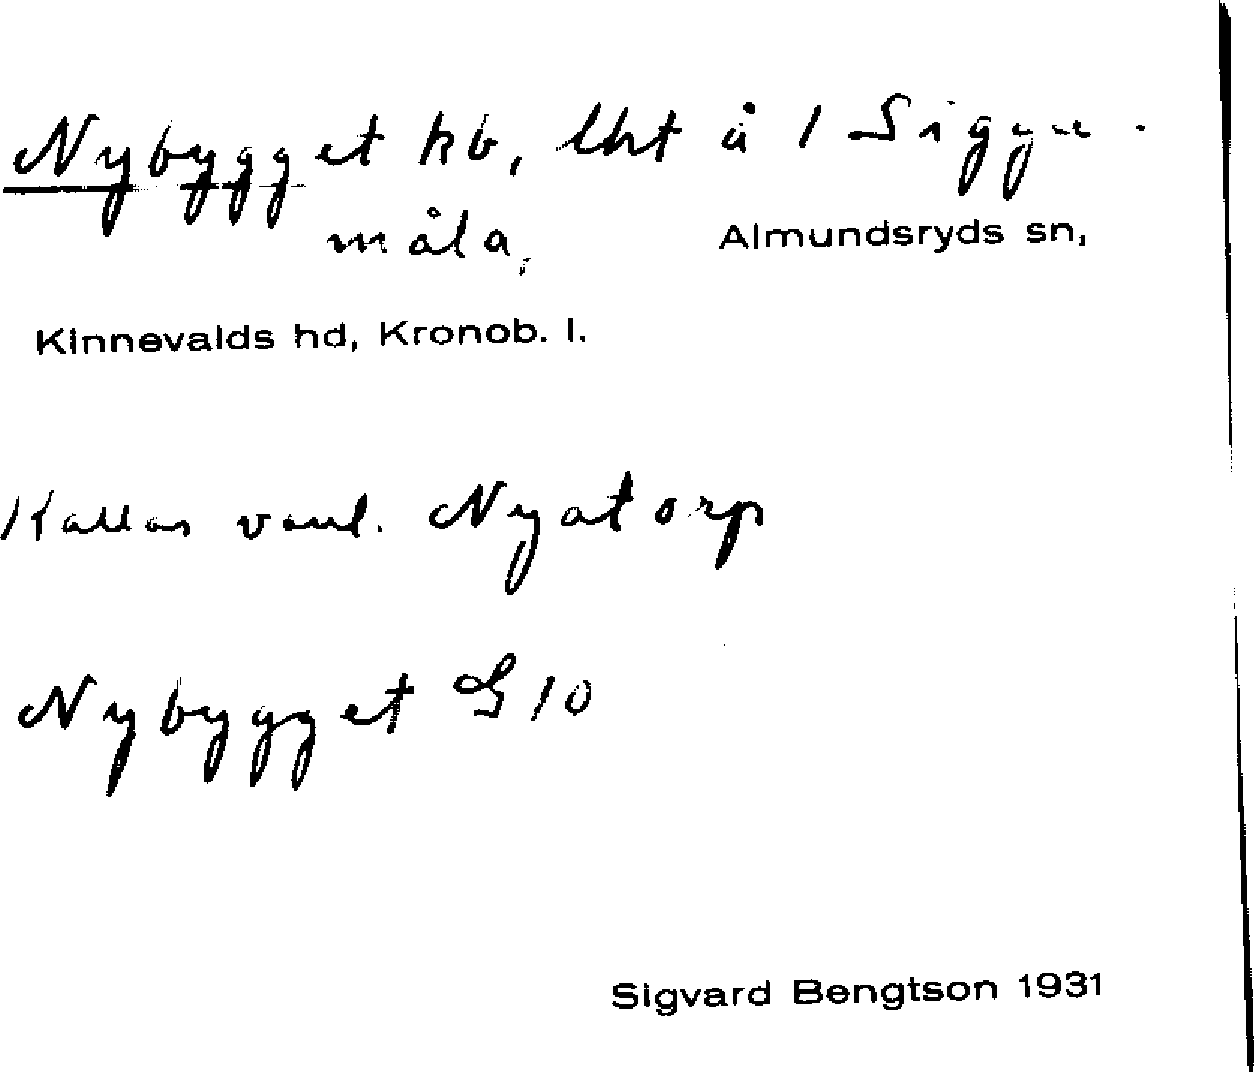 Nybygget hb, lht å 1 Sigge-
måla, Almundsryds sn,
Kinnevalds hd, Kronob. l.
Kallas vanl. Nyatorp
Nybygget G10
Sigvard Bengtson 1931